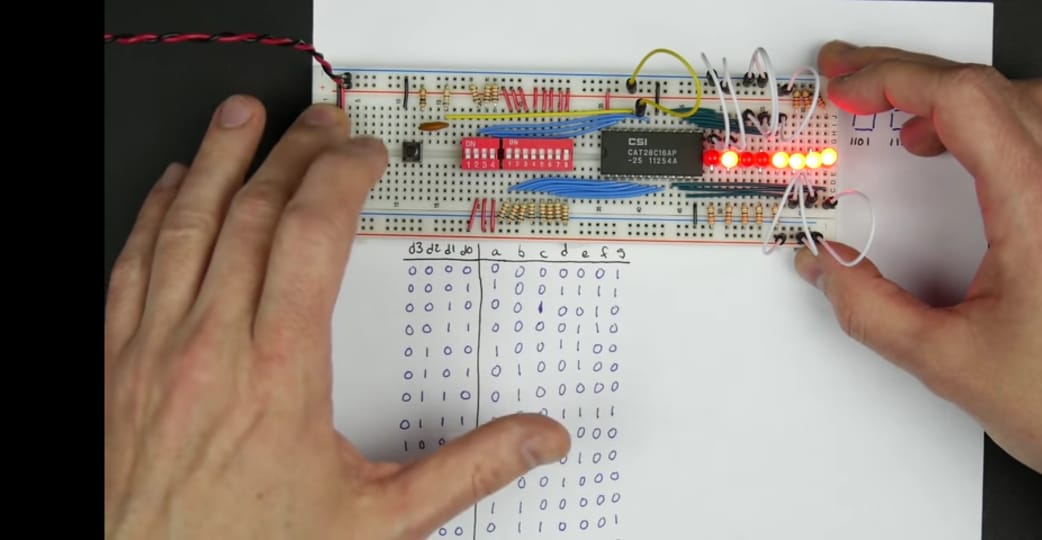 ON ON
1 2 3 4 1 2 3 4 5 6 7 8
CSI
CAT28C16AP
-25 11254A
1101
d3 d2 d1 d0 a b c d e f g
0 0 0 0 0 0 0 0 0 0 1
0 0 0 1 1 0 0 1 1 1 1
0 0 1 0 0 0 1 0 0 1 0
0 0 1 1 0 0 0 0 1 1 0
0 1 0 0 1 0 0 1 1 0 0
0 1 0 1 0 1 0 0 1 0 0
0 1 1 0 0 1 0 0 0 0 0
0 1 1 1 0 1 1 1 1
1 0 0 0 0 0
0 1 0 0
0 0 1 0 0 0
1 1 0 0 0 0 0
0 0 0 1 1 0 0 0 1